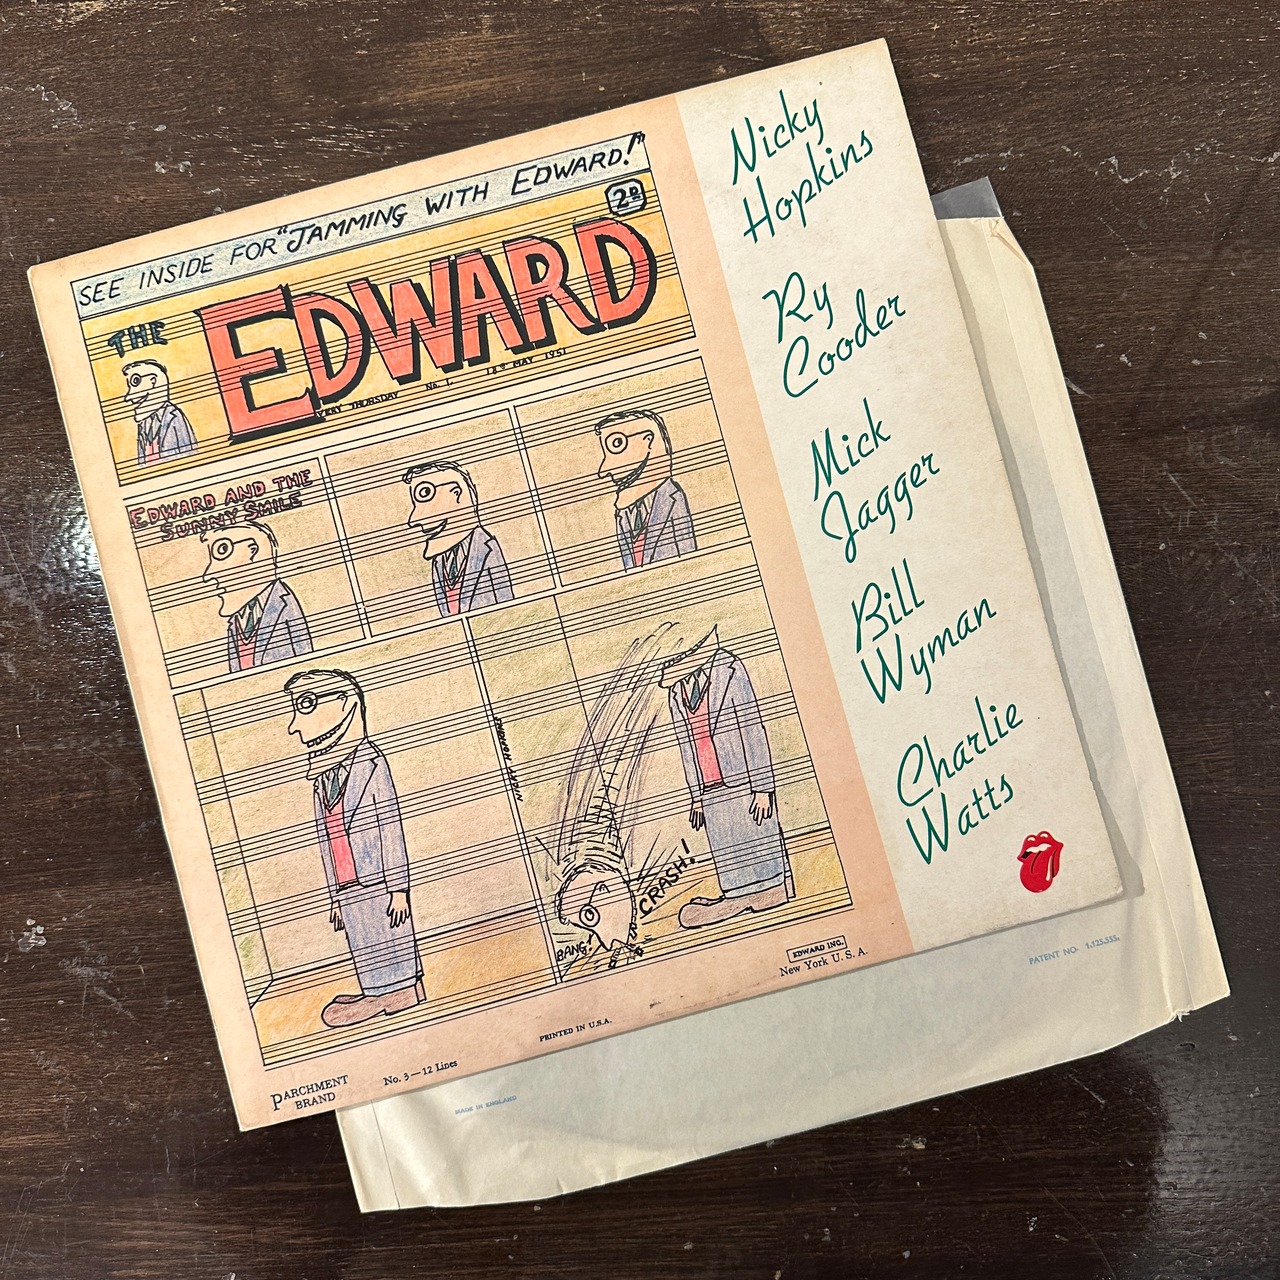 SEE INSIDE FOR "JAMMING WITH EDWARD!"
2D
THE EDWARD
VERY THURSDAY No. 1. 18th MAY 1951
EDWARD AND THE
SUNNY SMILE
BANG!
CRASH!
EDWARD INC.
New York U. S. A.
PRINTED IN U.S.A.
No. 3—12 Lines
PARCHMENT
BRAND
Nicky
Hopkins
Ry
Cooder
Mick
Jagger
Bill
Wyman
Charlie
Watts
PATENT NO. 1,125,555.
MADE IN ENGLAND